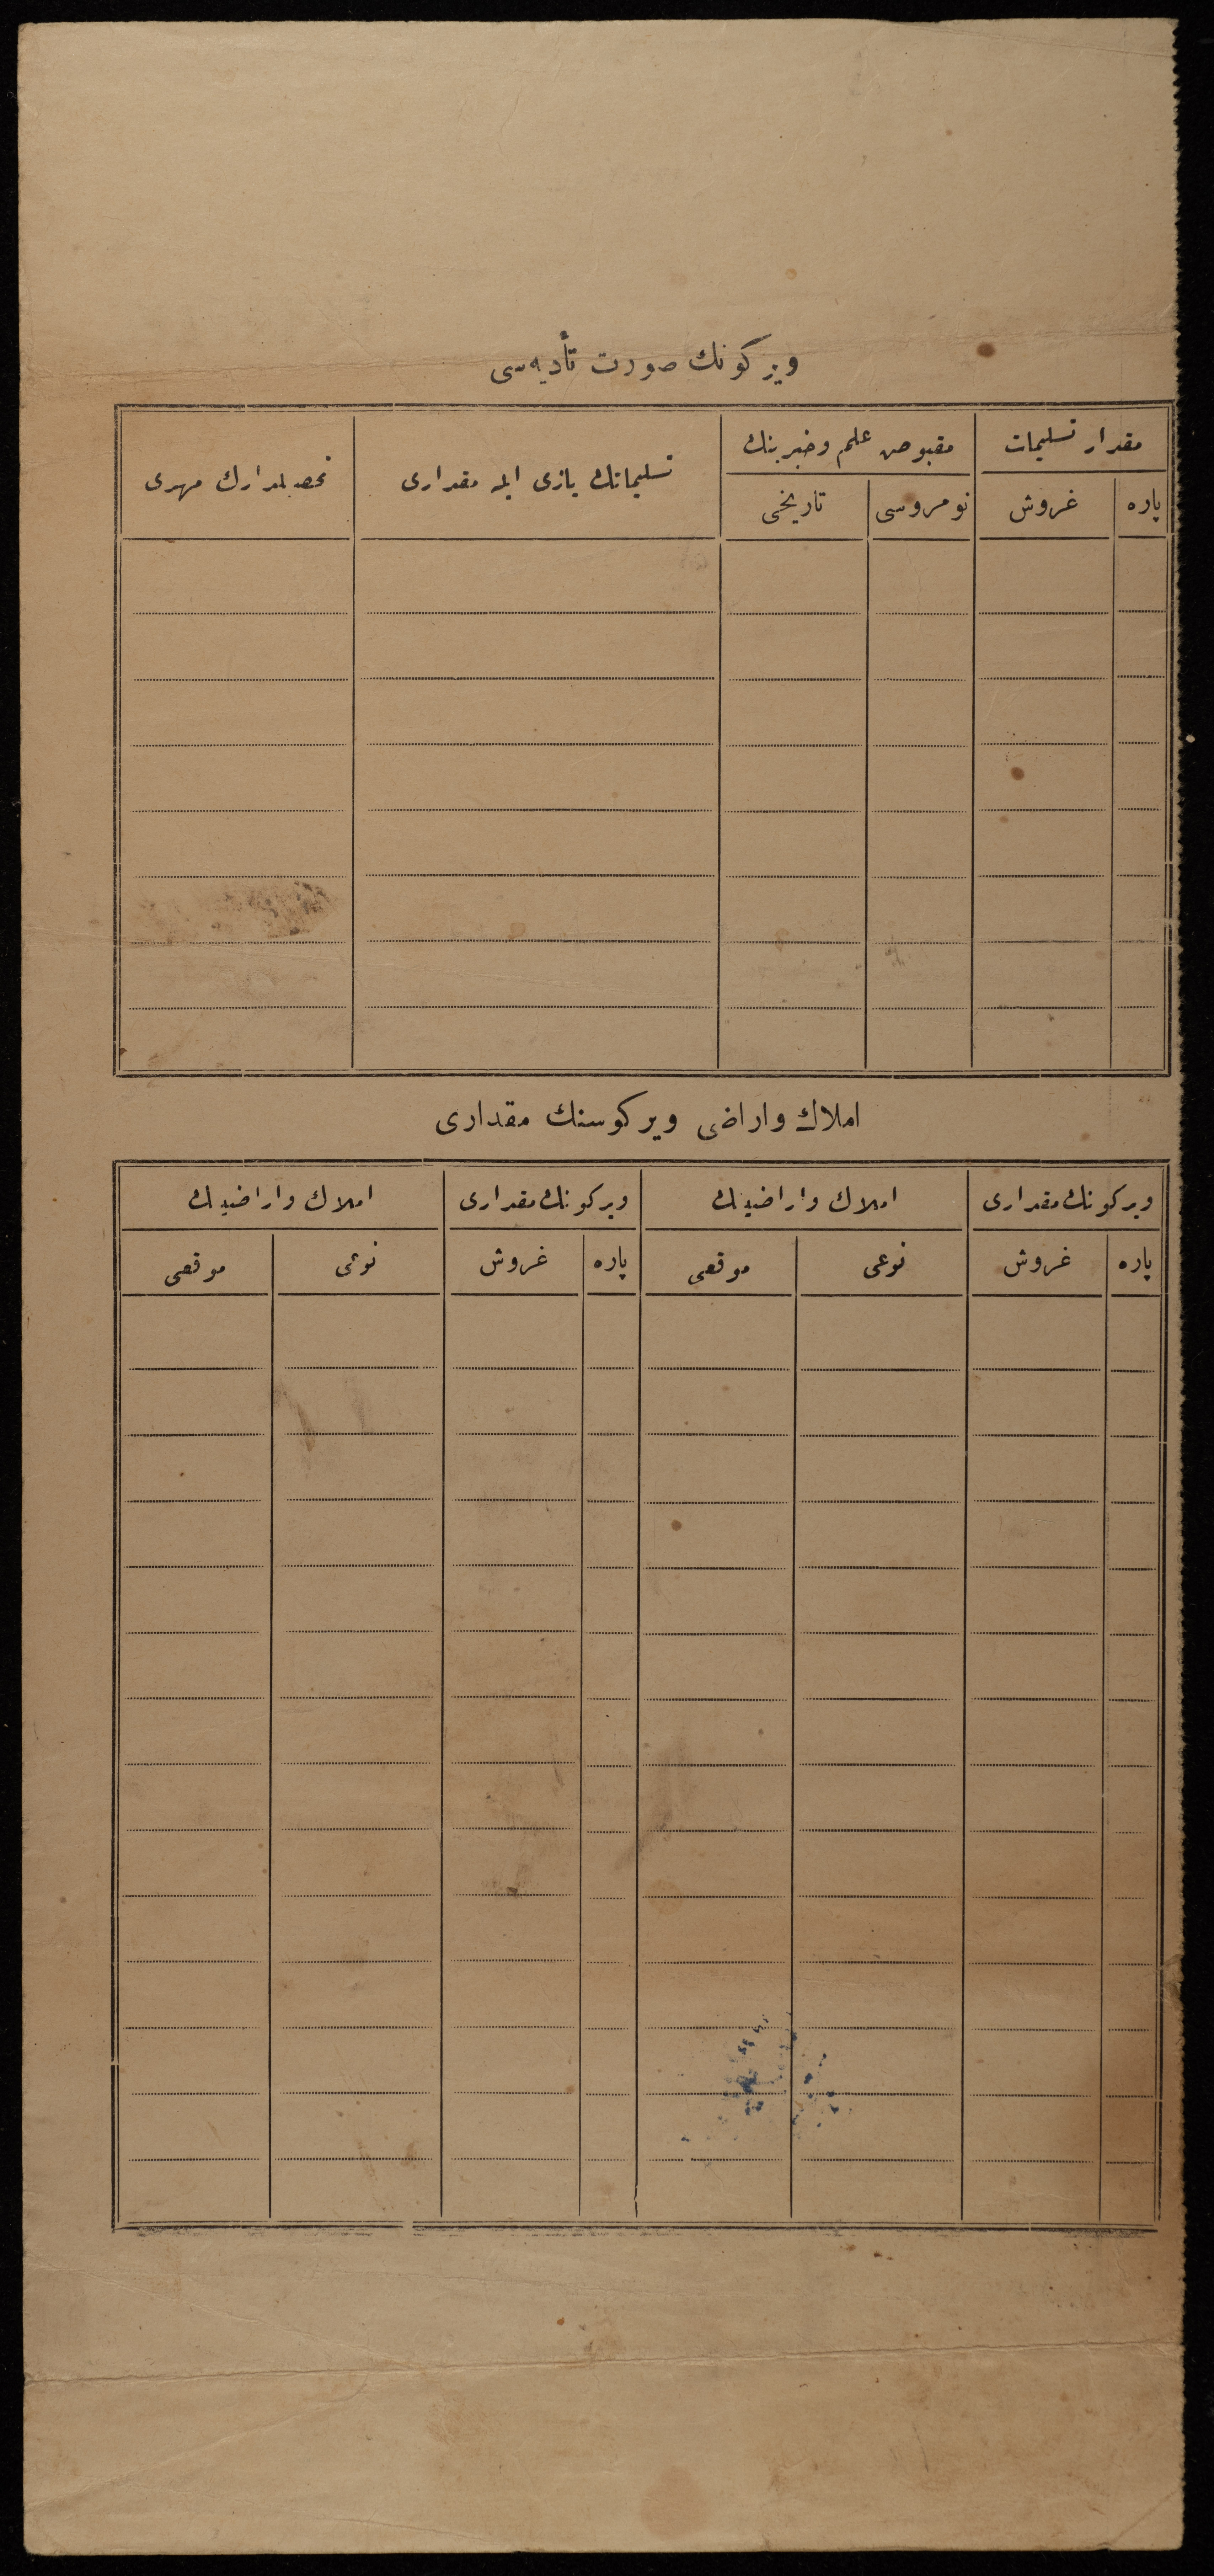 ويركونك صورت تأديه‌سی
مقدار تسليمات
مقبوض علم وخبرينك
تسليماتك يازی ايله مقداری
تحصيلدارك مهری
پاره
غروش
نومروسی
تاريخی
املاك واراضی ويركوسنك مقداری
ويركونك مقداری
املاك واراضينك
ويركونك مقداری
املاك واراضينك
پاره
غروش
نوعی
موقعی
پاره
غروش
نوعی
موقعی